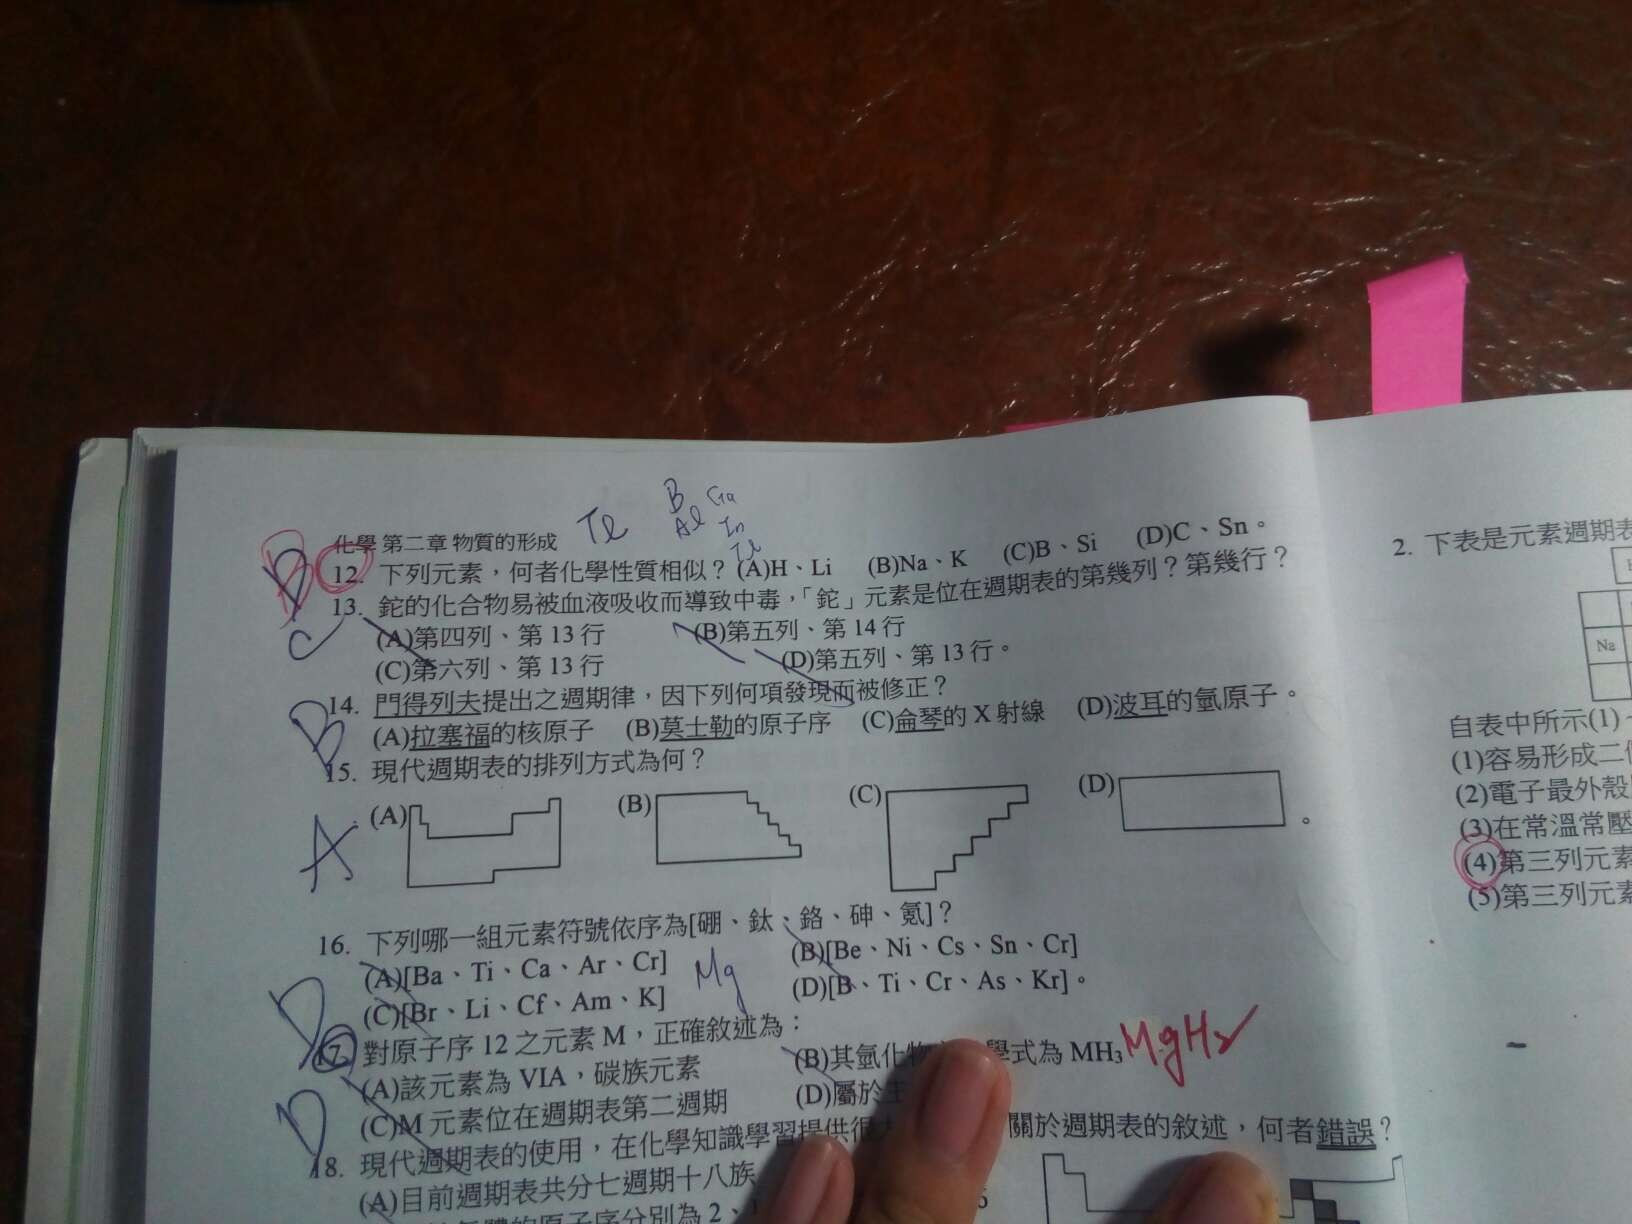 化學 第二章 物質的形成
Tl
B Ga
Al In
Tl
B
12. 下列元素，何者化學性質相似？ (A)H、Li (B)Na、K (C)B、Si (D)C、Sn。
13. 鉈的化合物易被血液吸收而導致中毒，「鉈」元素是位在週期表的第幾列？第幾行？
C
(A)第四列、第 13 行 (B)第五列、第 14 行
(C)第六列、第 13 行 (D)第五列、第 13 行。
14. 門得列夫提出之週期律，因下列何項發現而被修正？
B
(A)拉塞福的核原子 (B)莫士勒的原子序 (C)侖琴的 X 射線 (D)波耳的氫原子。
15. 現代週期表的排列方式為何？
A
(A) (B) (C) (D) 。
16. 下列哪一組元素符號依序為[硼、鈦、鉻、砷、氪]？
(A)[Ba、Ti、Ca、Ar、Cr] (B)[Be、Ni、Cs、Sn、Cr]
D
(C)[Br、Li、Cf、Am、K] Mg (D)[B、Ti、Cr、As、Kr]。
17. 對原子序 12 之元素 M，正確敘述為：
D
(A)該元素為 VIA，碳族元素 (B)其氫化物 學式為 MH3
(C)M 元素位在週期表第二週期 (D)屬於主
18. 現代週期表的使用，在化學知識學習提供很 關於週期表的敘述，何者錯誤？
(A)目前週期表共分七週期十八族
的原子序分別為 2、
2. 下表是元素週期表
Na
自表中所示(1)~
(1)容易形成二
(2)電子最外殼
(3)在常溫常壓
(4)第三列元素
(5)第三列元素